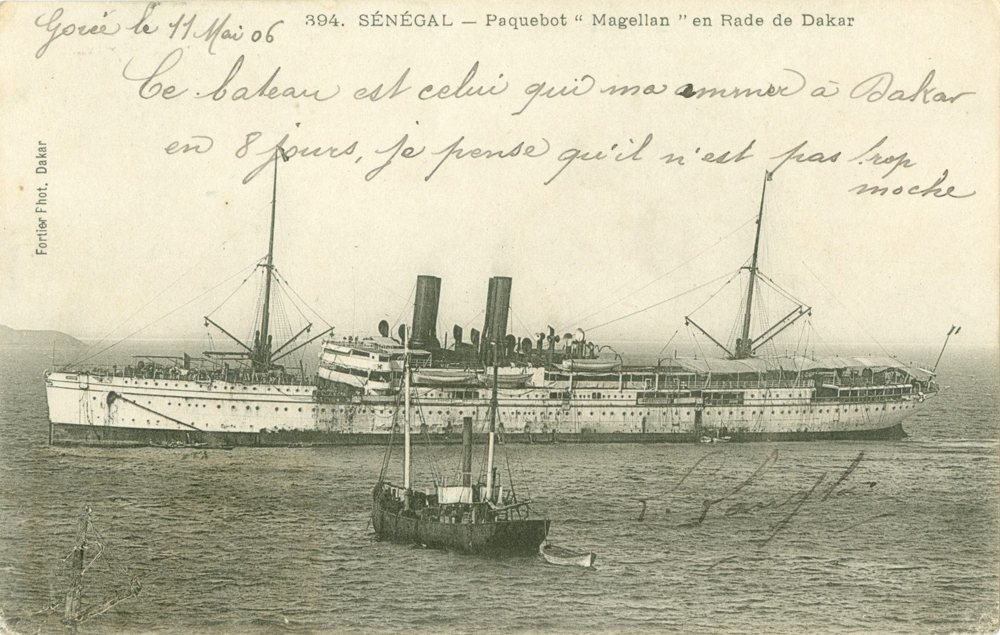 394. SÉNÉGAL — Paquebot “ Magellan ” en Rade de Dakar
Gorée le 11 Mai 06
Ce bateau est celui qui ma ammner à Dakar
en 8 jours, je pense qu'il n'est pas trop
moche
Fortier Phot. Dakar